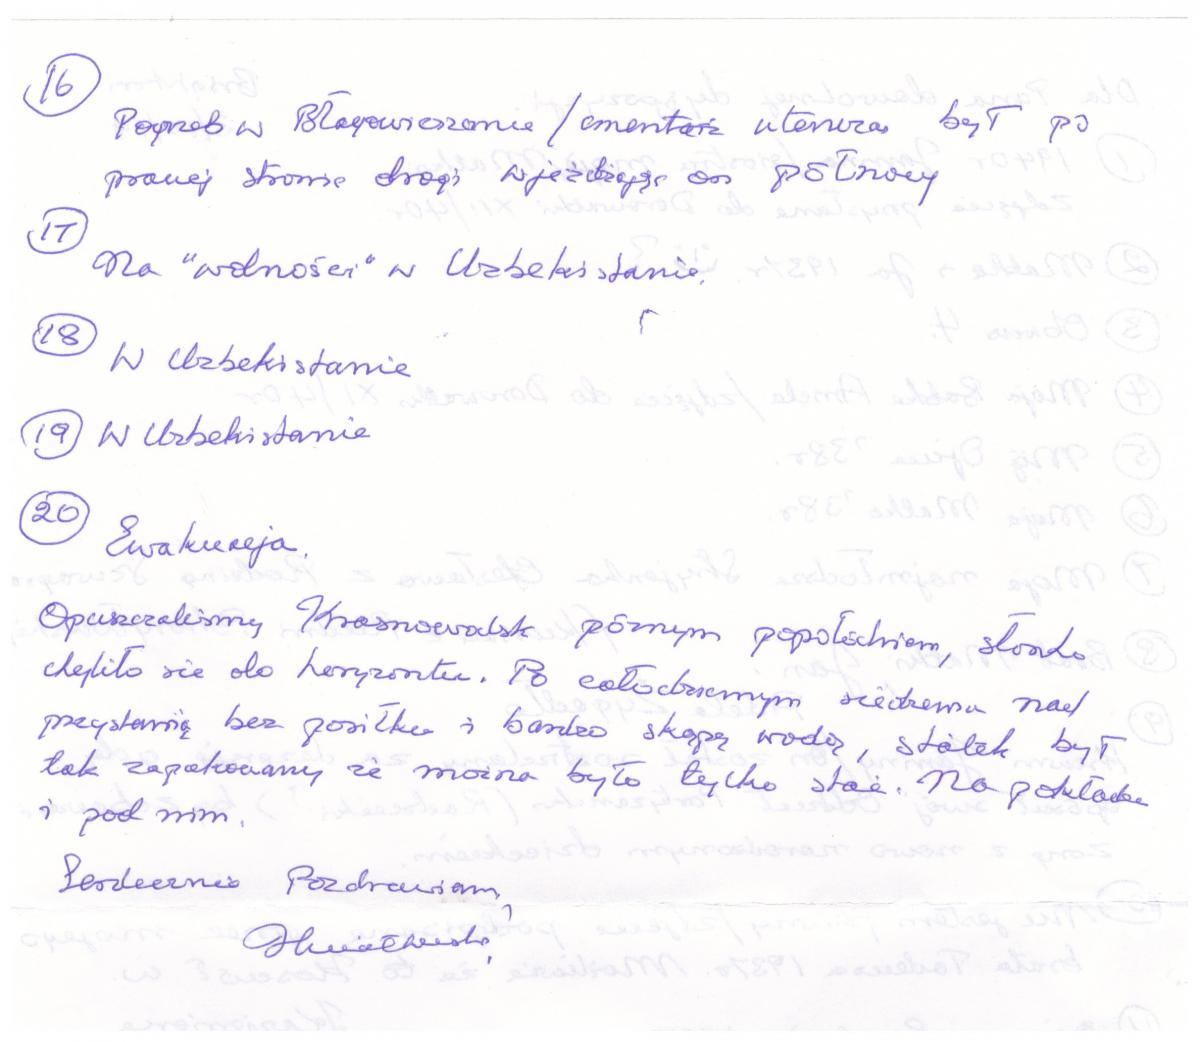 16
Pogrzeb w Błagowieszczenie /cmentarz wtenczas był po
prawej stronie drogi wjeżdżając od północy
17
Na "wolności" w Uzbekistanie.
18
W Uzbekistanie
19 W Uzbekistanie
20
Ewakuacja.
Opuszczaliśmy Krasnowodsk późnym popołudniem, słońce
chyliło się do horyzontu. Po całodziennym siedzeniu nad
przystanią bez posiłku i bardzo skąpą wodą, statek był
tak zapakowany że można było tylko stać. Na pokładzie
i pod nim.
Serdecznie Pozdrawiam,